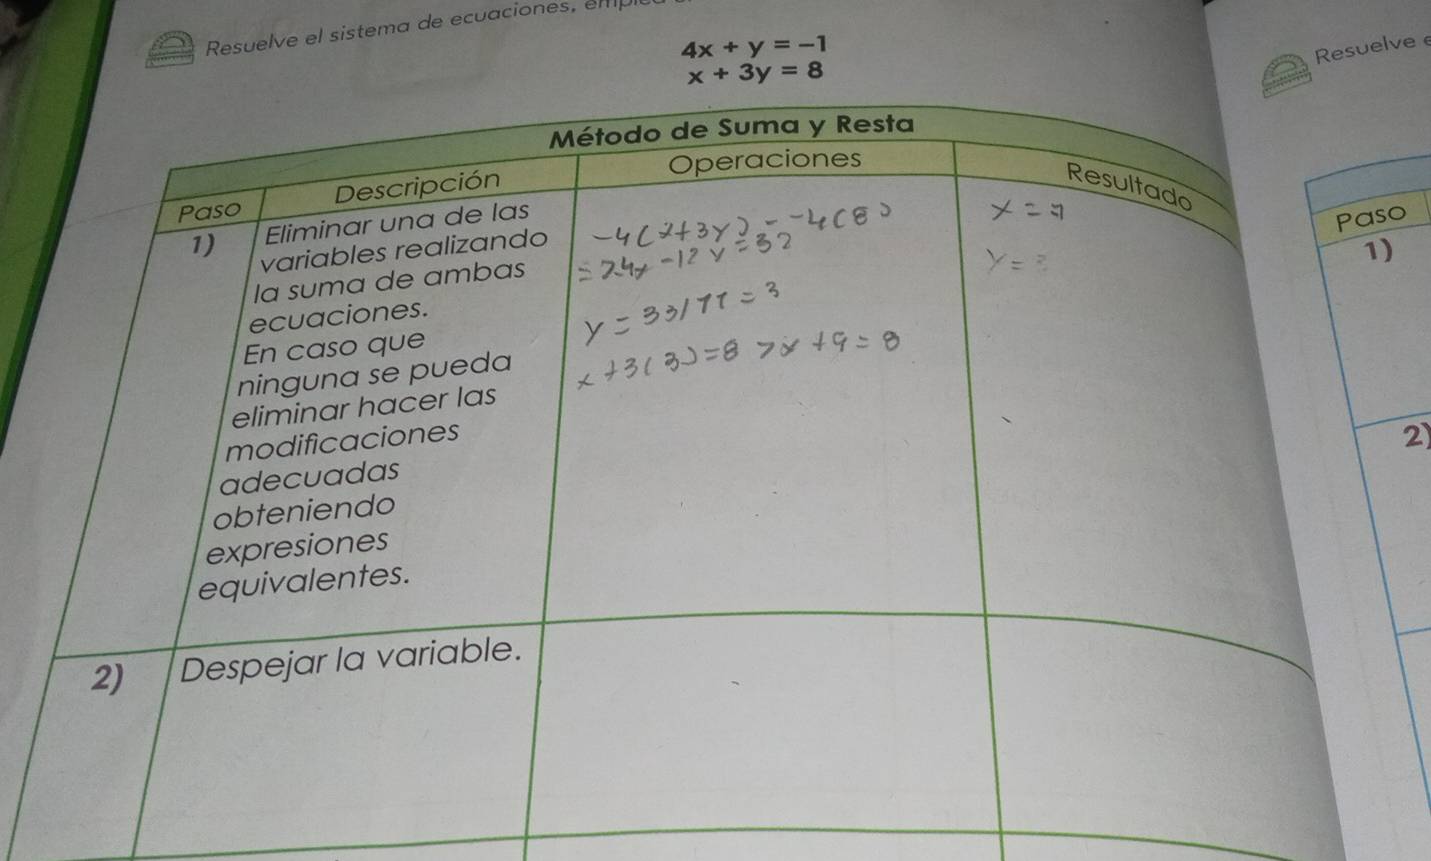 Resuelve el sistema de ecuaciones,
4x + y = -1
x + 3y = 8
Método de Suma y Resta
Paso
Descripción
Operaciones
Resultado
1)
Eliminar una de las
variables realizando
la suma de ambas
ecuaciones.
En caso que
ninguna se pueda
eliminar hacer las
modificaciones
adecuadas
obteniendo
expresiones
equivalentes.
-4(x+3y) = -4(8)
-12y = 32
y = 33/11 = 3
x+3(3)=8 > x+9=8
x =
y =
2)
Despejar la variable.
Resuelve
Paso
1)
2)